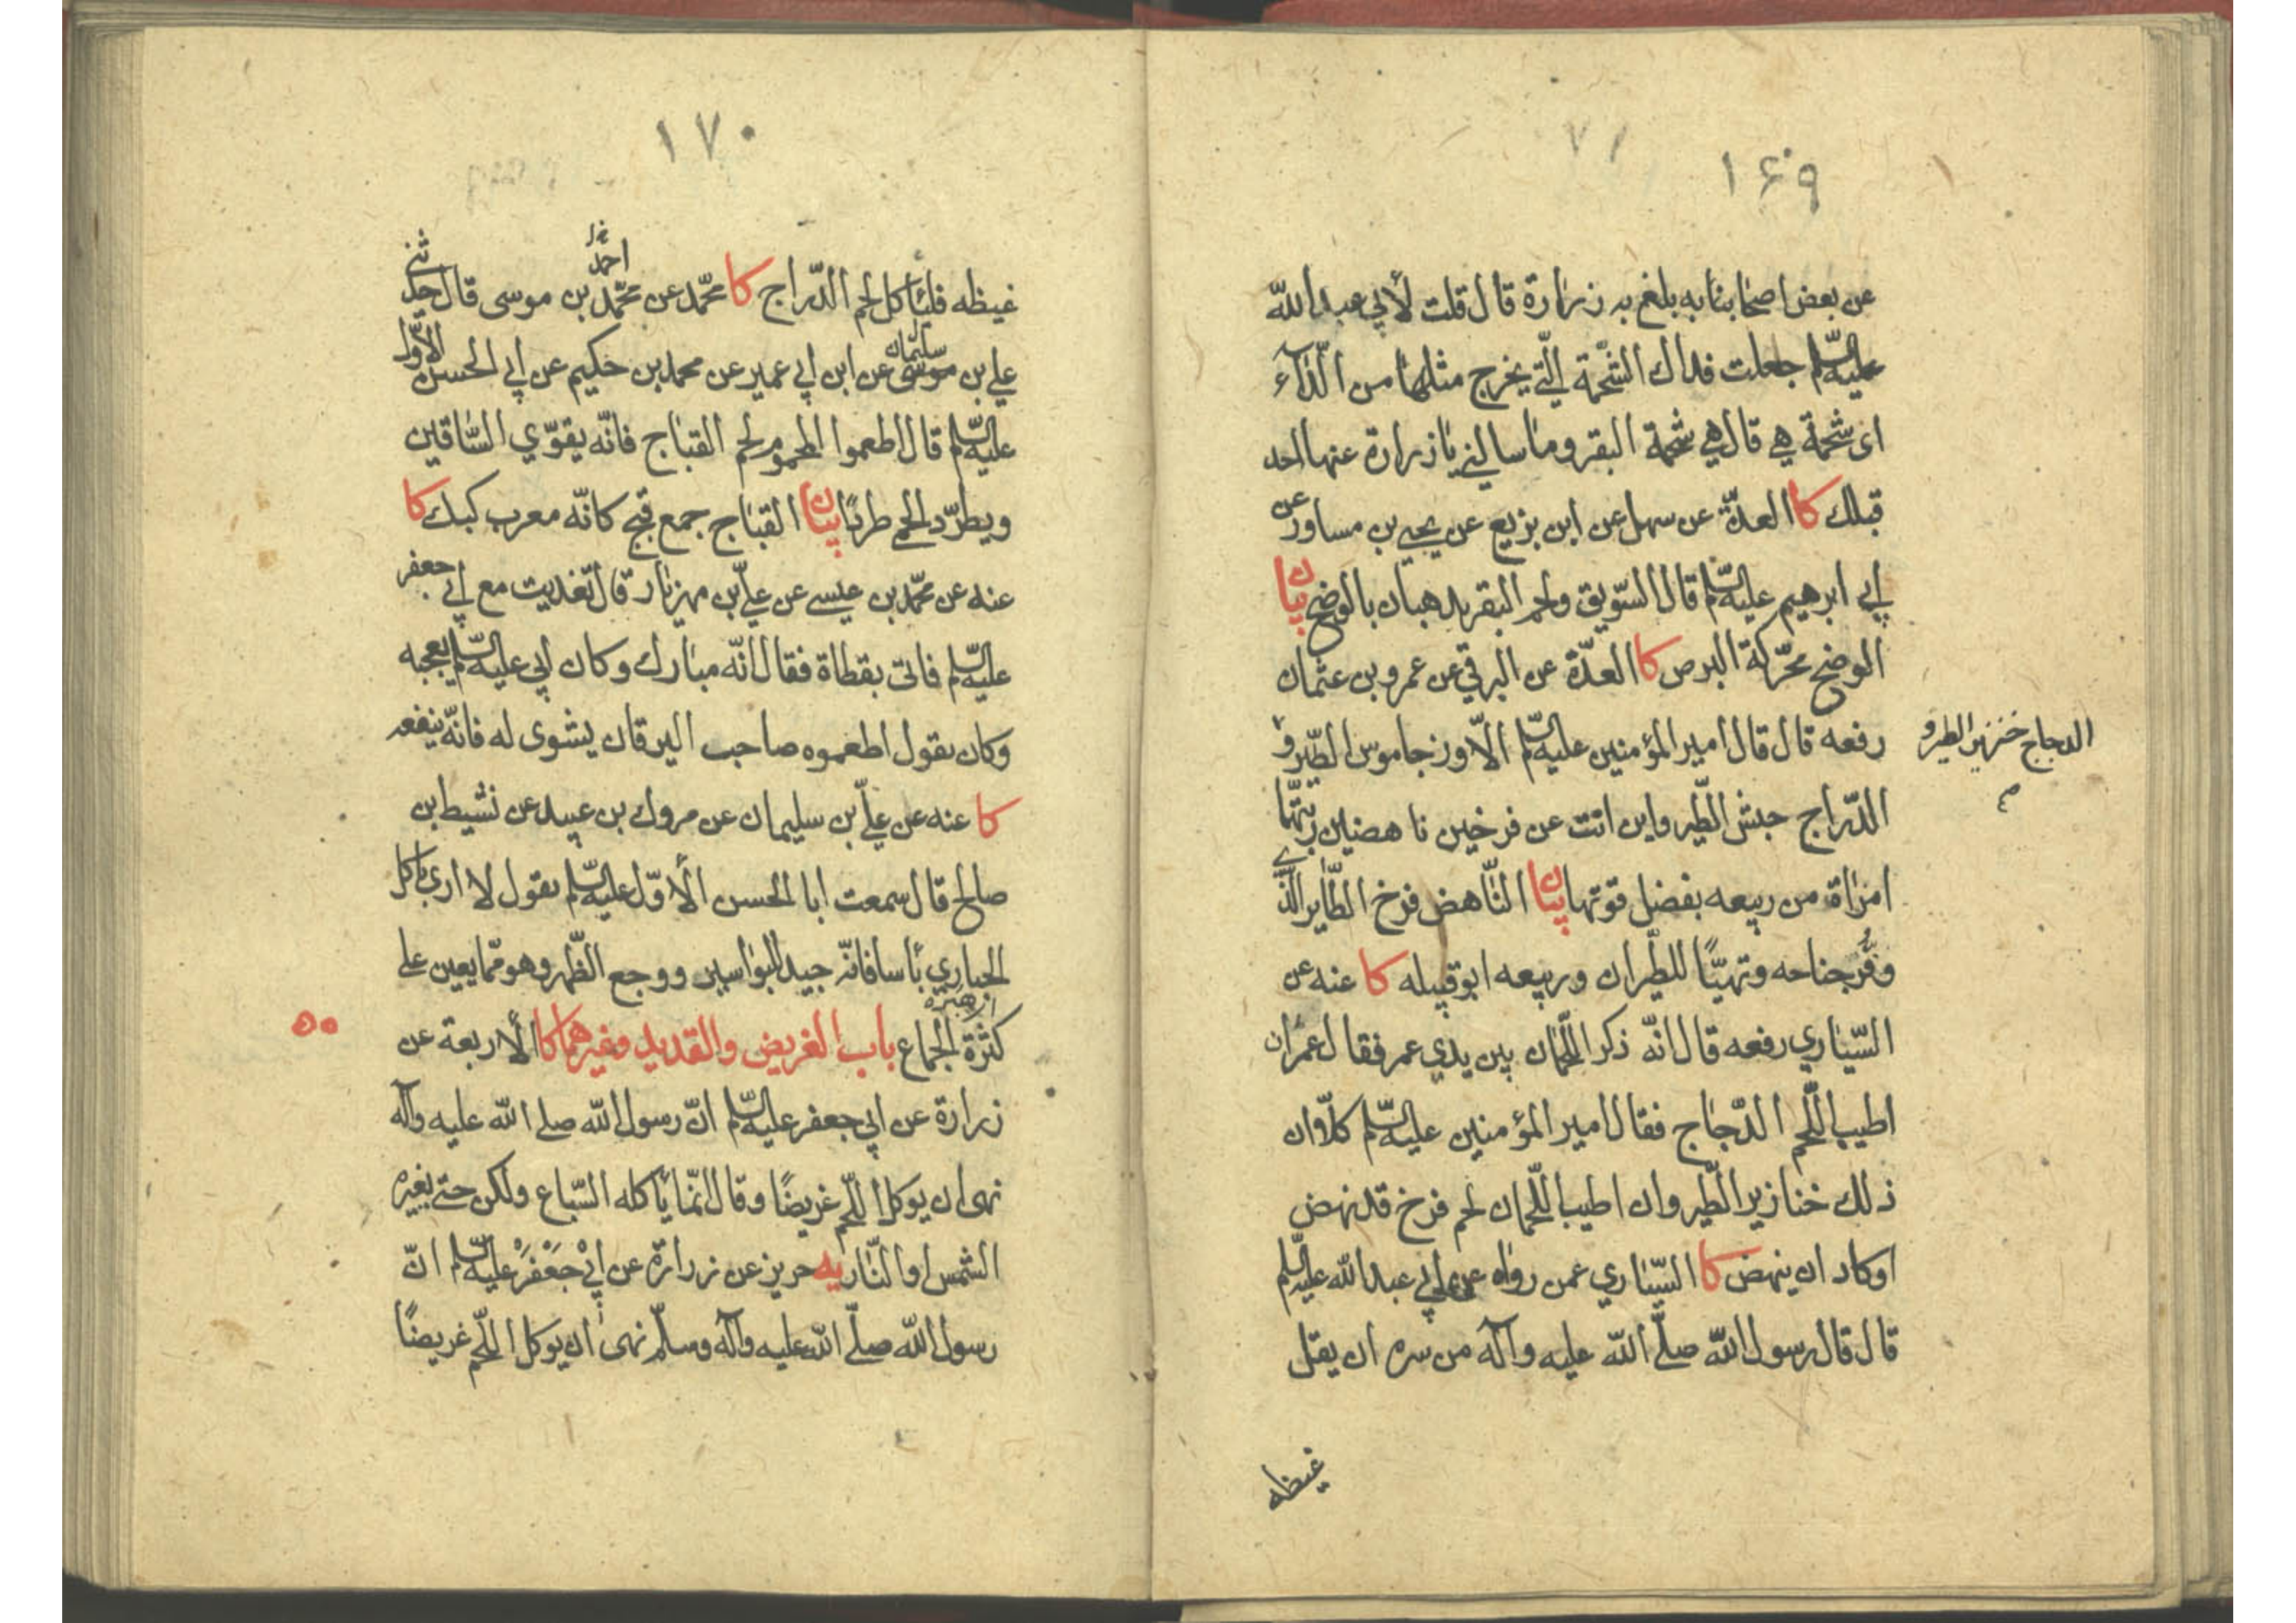 ١٦٩
٧١
عن بعض اصحابنا به بلغ به زرارة قال قلت لأبي عبد الله
عليه السلم جعلت فداك الشحمة الّتي يخرج مثلها من الدّآء
اى شحمة هي قال هي شحمة البقر وما سالني يا زرارة عنها احد
قبلك كا العدّة عن سهل عن ابن بزيع عن يحيى بن مساور عن
أبي ابرهيم عليه السّلم قال السّويق ولحم البقر يذهبان بالوضح بيان
الوضح محرّكة البرص كا العدّة عن البرقي عن عمرو بن عثمان
رفعه قال قال امير المؤمنين عليه السّلم الأوز جاموس الطّير و
الدجاج خنزير الطير و
الدّراج حبش الطّير واين انت عن فرخين ناهضين ربّتهما
امراة من ربيعه بفضل قوتها بيان النّاهض فرخ الطّاير الّذي
وفّر جناحه وتهيّأ للطّيران وربيعه ابو قبيله كا عنه عن
السّيّاري رفعه قال انّه ذكر اللّحمان بين يدي عمر فقال عمر ان
اطيب اللّحم الدّجاج فقال امير المؤمنين عليه السّلم كلّا وان
ذلك خنازير الطّير وان اطيب اللّحمان لحم فرخ قد نهض
اوكاد ان ينهض كا السّيّاري عمن رواه عن أبي عبد الله عليه السّلم
قال قال رسول الله صلّى الله عليه وآله من سره ان يقتل
غيظه
١٧٠
غيظه فليأكل لحم الدّراج كا محمّد عن محمّد بن موسى قال حدثني
احمد
علي بن موسى عن ابن أبي عمير عن محمد بن حكيم عن أبي الحسن الأوّل
سليمان
عليه السّلم قال اطعموا المحموم لحم القباج فانّه يقوّي السّاقين
ويطرد الحمى طردًا بيان القباج جمع قبج كانّه معرب كبك كا
عنه عن محمّد بن عيسى عن عليّ بن مهزيار قال تغديت مع أبي جعفر
عليه السّلم فاتى بقطاة فقال انّه مبارك وكان أبي عليه السّلم يعجبه
وكان يقول اطعموه صاحب اليرقان يشوى له فانّه ينفعه
كا عنه عن عليّ بن سليمان عن مروك بن عبيد عن نشيط بن
صالح قال سمعت ابا الحسن الأوّل عليه السّلم يقول لا ارى باكل
الحباري بأسا فانّه جيد للبواسير ووجع الظّهر وهو ممّا يعين على
كثرة الجماع باب الغريض والقديد وغيرهما كا الأربعة عن
زرارة عن ابي جعفر عليه السّلم انّ رسول الله صلى الله عليه وآله
نهى ان يوكل اللّحم غريضًا وقال انّما يأكله السّباع ولكن حتى يغيره
الشمس او النّار يه حريز عن زرارة عن أبي جعفر عليه السّلم انّ
رسول الله صلّى الله عليه وآله وسلّم نهى ان يوكل اللّحم غريضًا